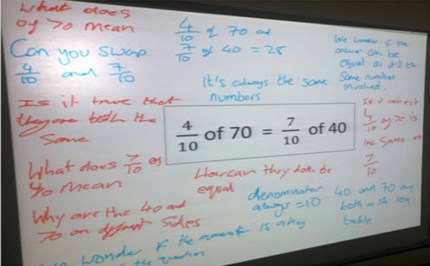 What does
of 70 mean
Can you swap
4/10 and 7/10
Is it true that
they are both the
Same
What does 7/10 of
40 mean
Why are the 40 and
70 on different sides
4/10 of 70 and
7/10 of 40 = 28
It's always the same
numbers
4/10 of 70 = 7/10 of 40
How can they both be
equal
denominator
always = 10
We wonder if the
answer can be
equal as it's the
Same numbers
involved.
Is it
4/10 of 70 is
the same
7/10
40 and 70 are
both in the 10x
table
wonder if the is a key
the question